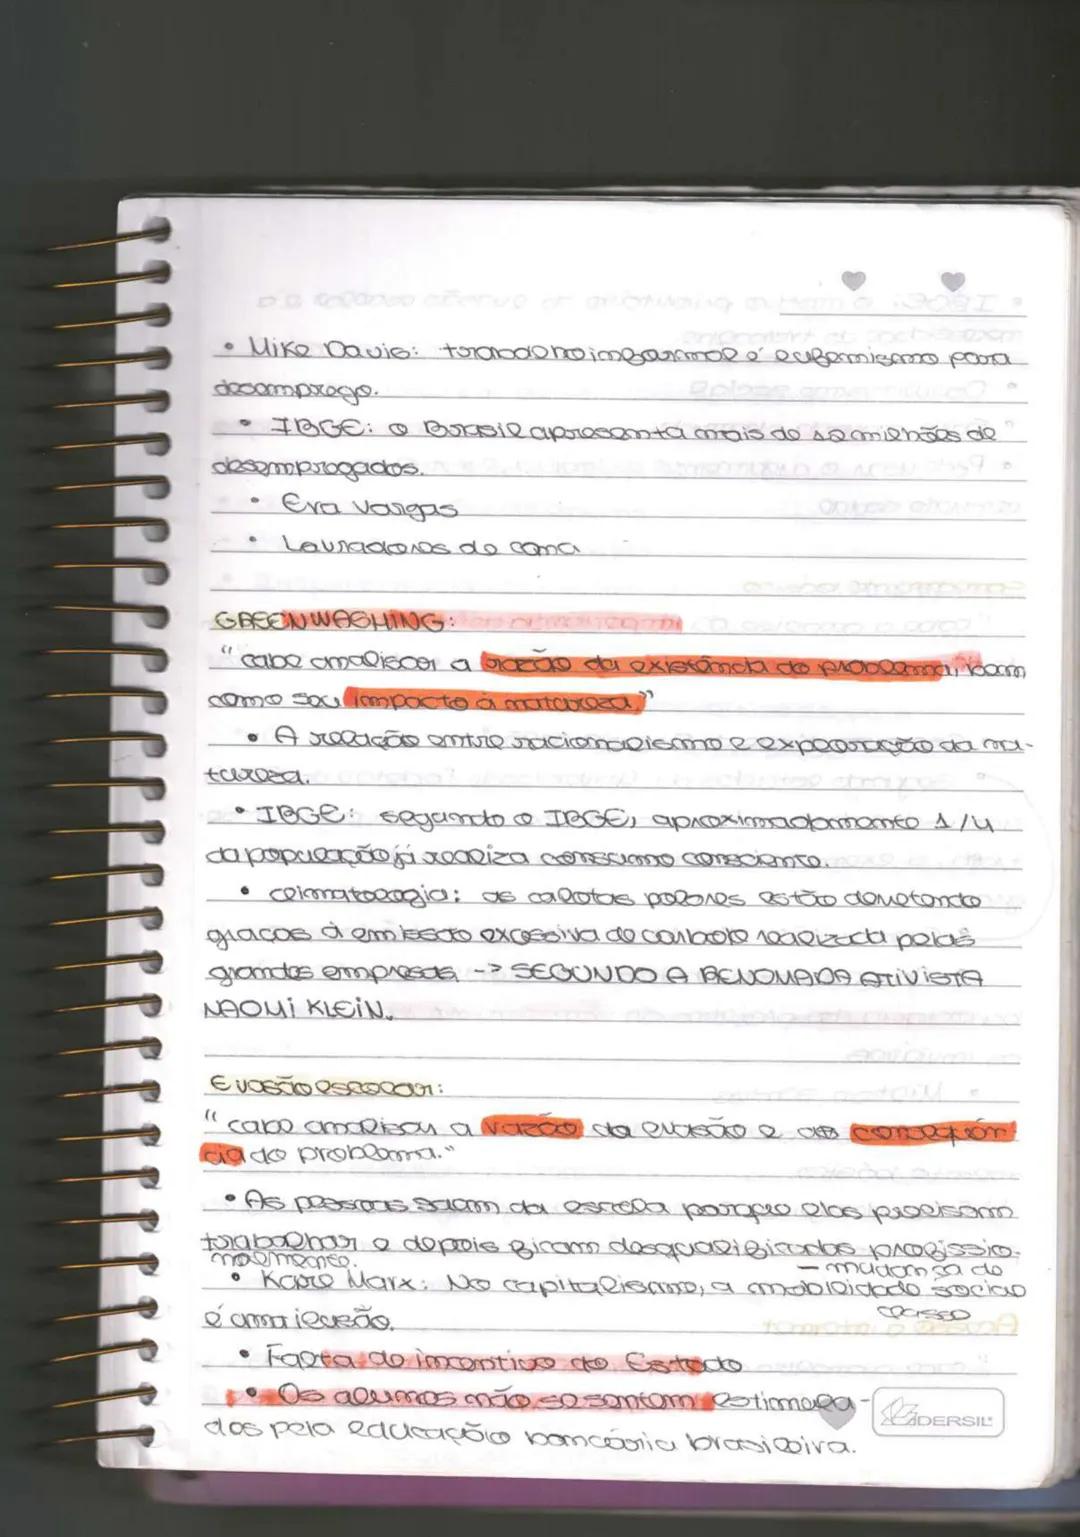 • Mike Davis: trabalho informal é eufemismo para
desemprego.
• IBGE: o Brasil apresenta mais de 12 milhões de
desempregados.
• Eva Vargas
• Lavradores de cana
GREENWASHING:
"cabe analisar a razão da existência do problema, bem
como seu impacto à natureza."
• A relação entre racionalismo e exploração da na-
tureza.
• IBGE: segundo o IBGE, aproximadamente 1/4
da população já realiza consumo consciente.
• climatologia: as calotas polares estão derretendo
graças à emissão excessiva de carbono realizada pelas
grandes empresas -> SEGUNDO A RENOMADA ATIVISTA
NAOMI KLEIN.
Evasão escolar:
"cabe analisar a razão da evasão e as consequên
cia do problema."
• As pessoas saem da escola porque elas precisam
trabalhar e depois ficam desqualificadas profissio-
nalmente.
– mudança de
• Karl Marx: No capitalismo, a mobilidade social
classe
é uma ilusão.
• Falta de incentivo do Estado
• Os alunos não se sentem estimula-
dos pela educação bancária brasileira.
DERSIL